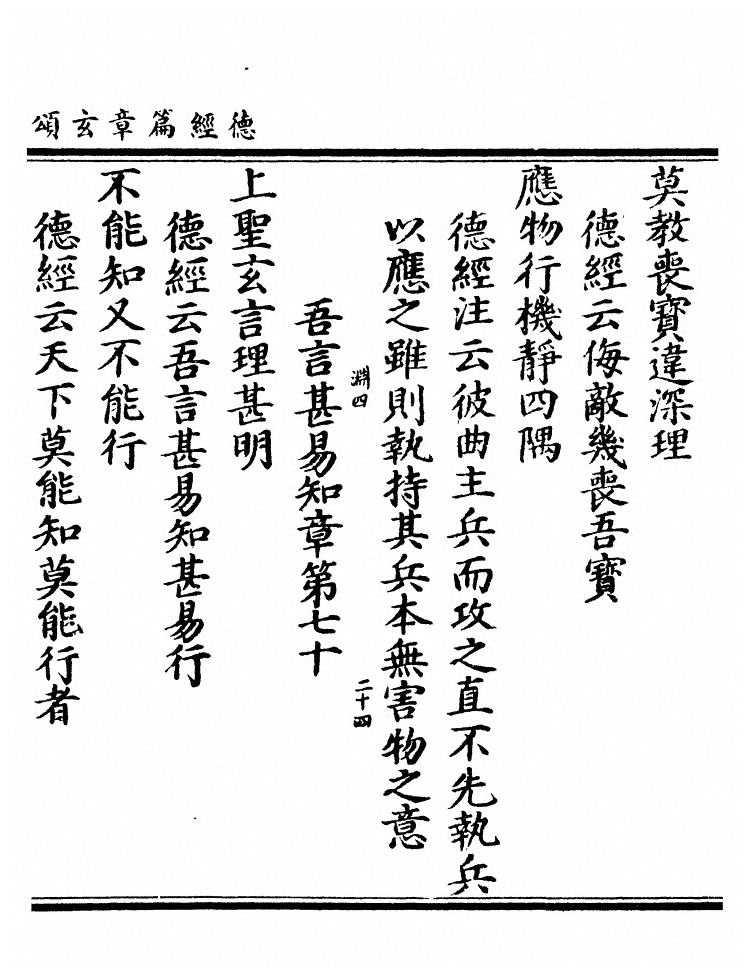 德經篇章玄頌
莫教喪寶違深理
德經云侮敵幾喪吾寶
應物行機靜四隅
德經注云彼曲主兵而攻之直不先執兵
以應之雖則執持其兵本無害物之意
淵四
二十四
吾言甚易知章第七十
上聖玄言理甚明
德經云吾言甚易知甚易行
不能知又不能行
德經云天下莫能知莫能行者